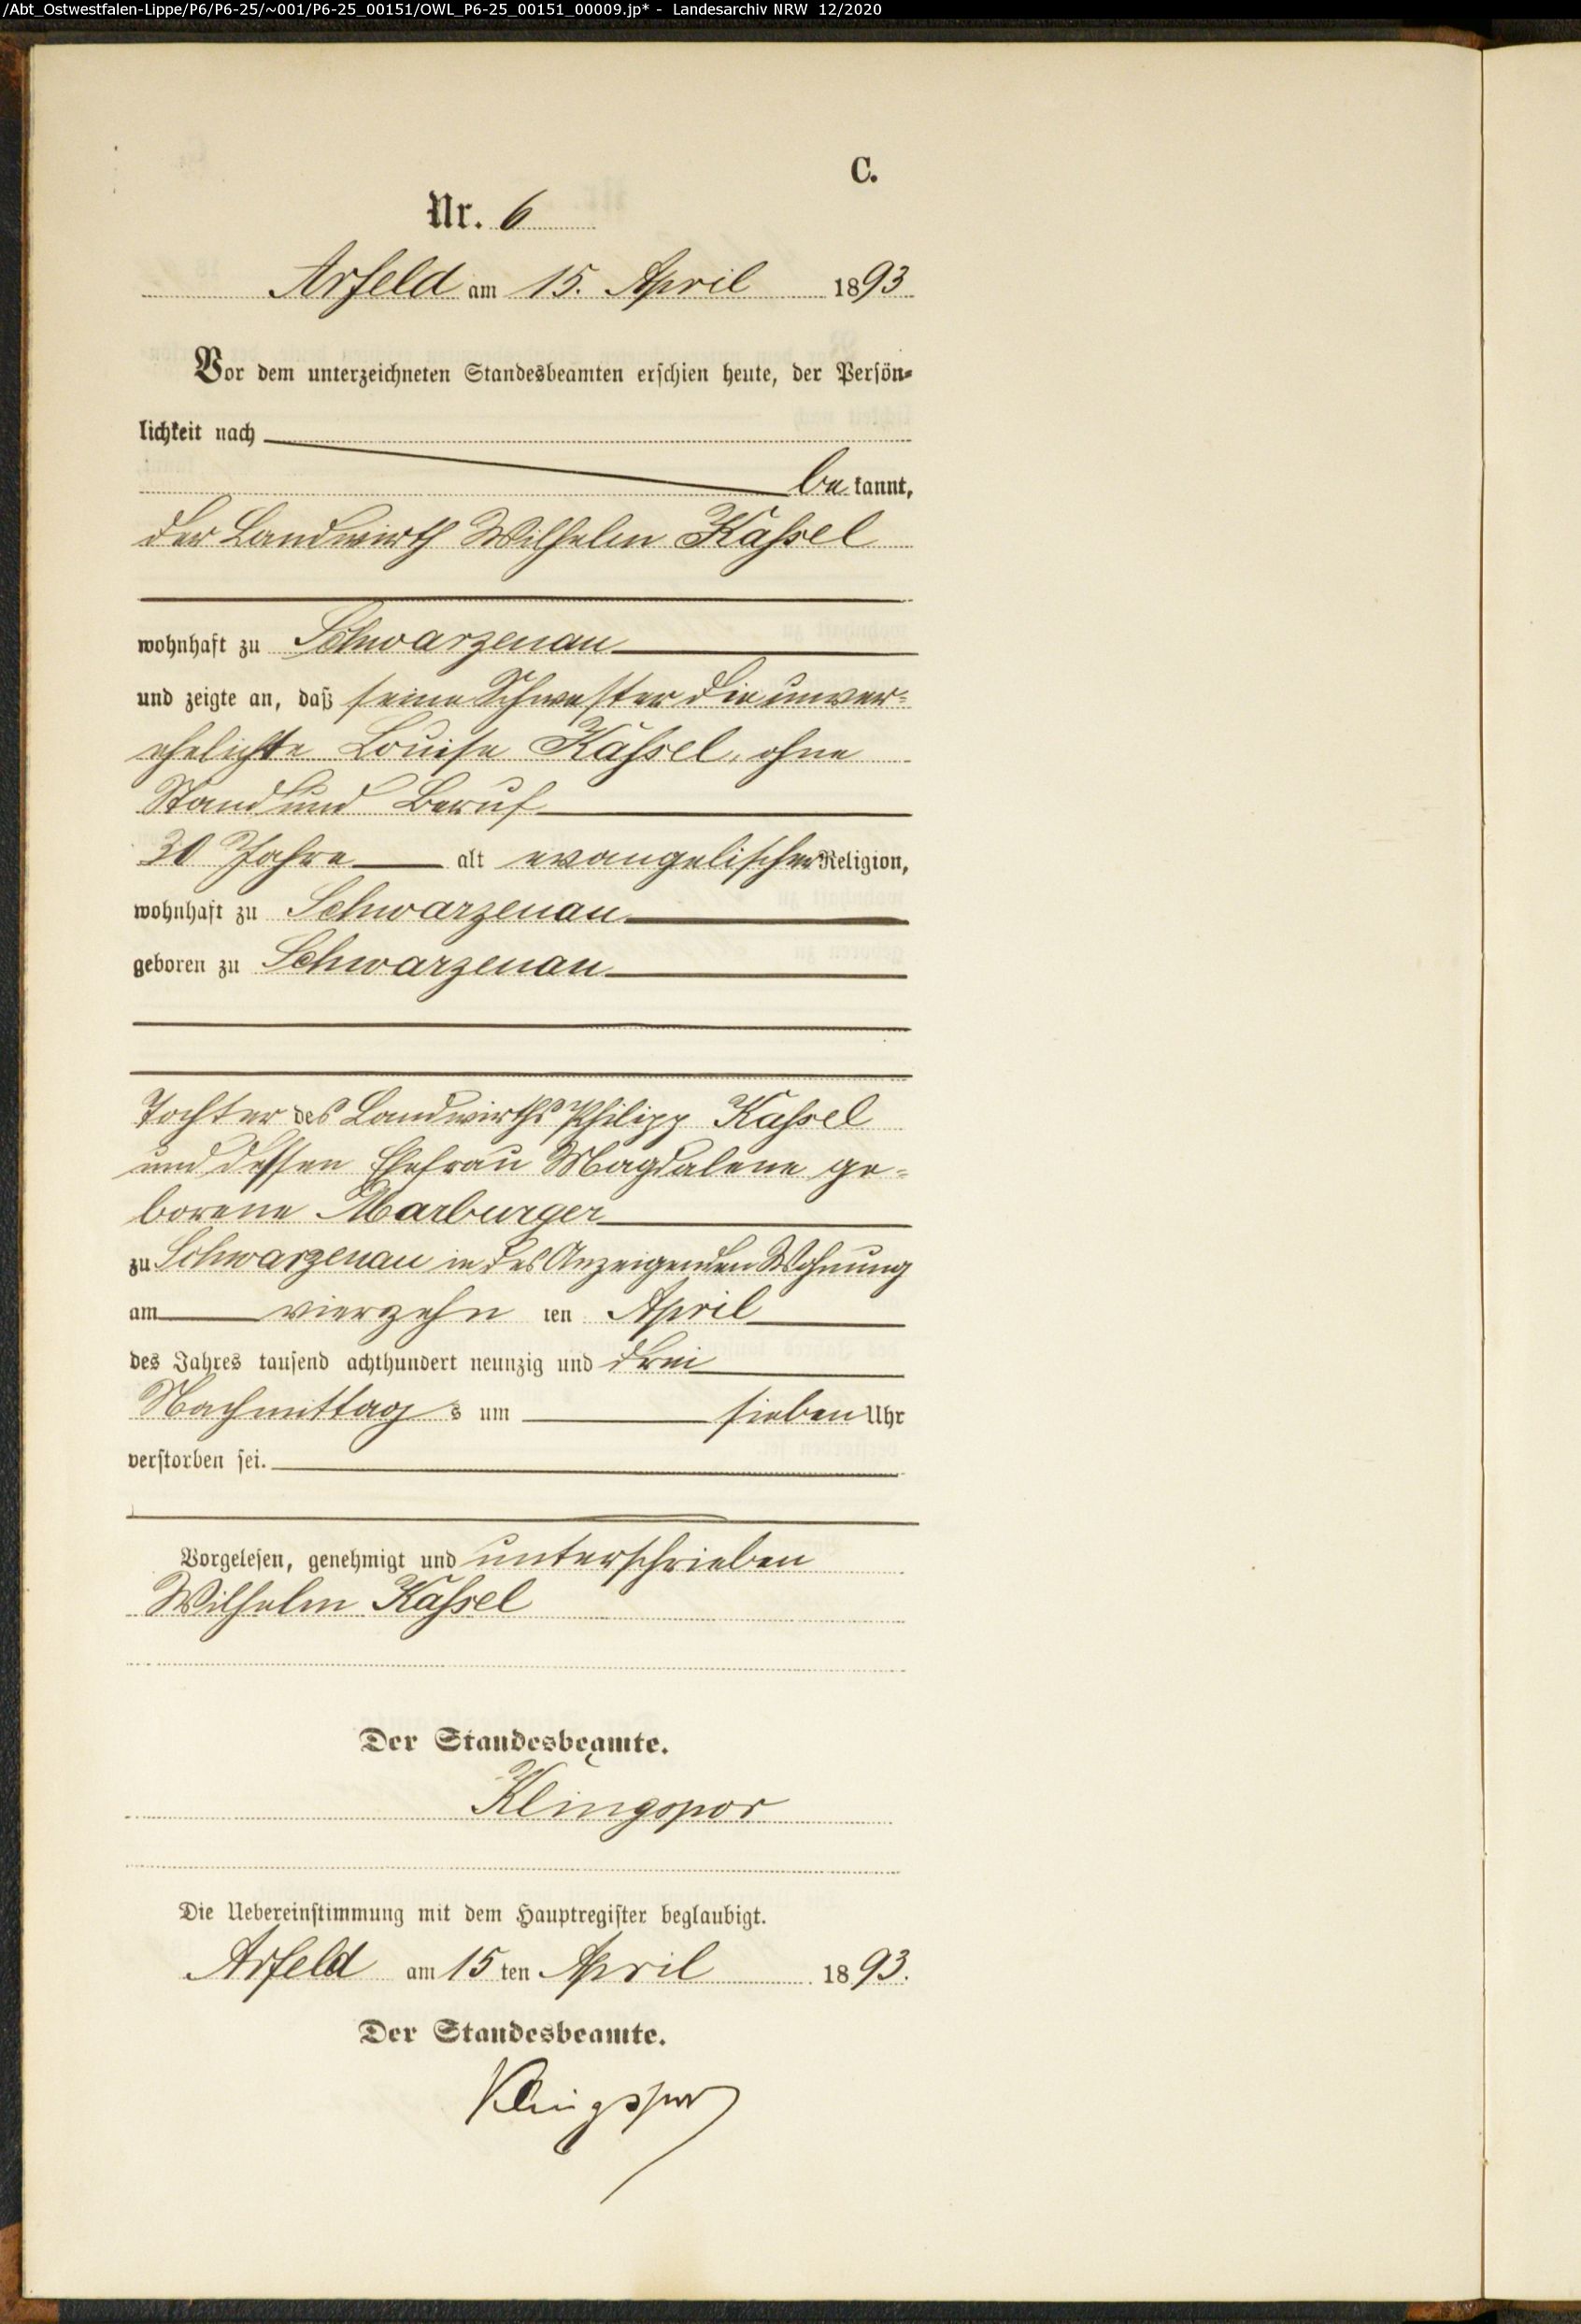 /Abt_Ostwestfalen-Lippe/P6/P6-25/~001/P6-25_00151/OWL_P6-25_00151_00009.jp* - Landesarchiv NRW 12/2020
C.
Nr. 6
Arfeld am 15. April 1893
Vor dem unterzeichneten Standesbeamten erschien heute, der Persön-
lichkeit nach
be kannt,
der Landwirth Wilhelm Kaßel
wohnhaft zu Schwarzenau
und zeigte an, daß seine Schwester die unver-
ehelichte Louise Kaßel, ohne
Stand und Beruf
30 Jahre alt evangelischer Religion,
wohnhaft zu Schwarzenau
geboren zu Schwarzenau
Tochter des Landwirths Philipp Kaßel
und dessen Ehefrau Magdalene ge-
borene Marburger
zu Schwarzenau in des Anzeigenden Wohnung
am vierzehn ten April
des Jahres tausend achthundert neunzig und drei
Nachmittag s um sieben Uhr
verstorben sei.
Vorgelesen, genehmigt und unterschrieben
Wilhelm Kaßel
Der Standesbeamte.
Klingspor
Die Uebereinstimmung mit dem Hauptregister beglaubigt.
Arfeld am 15 ten April 1893.
Der Standesbeamte.
Klingspor